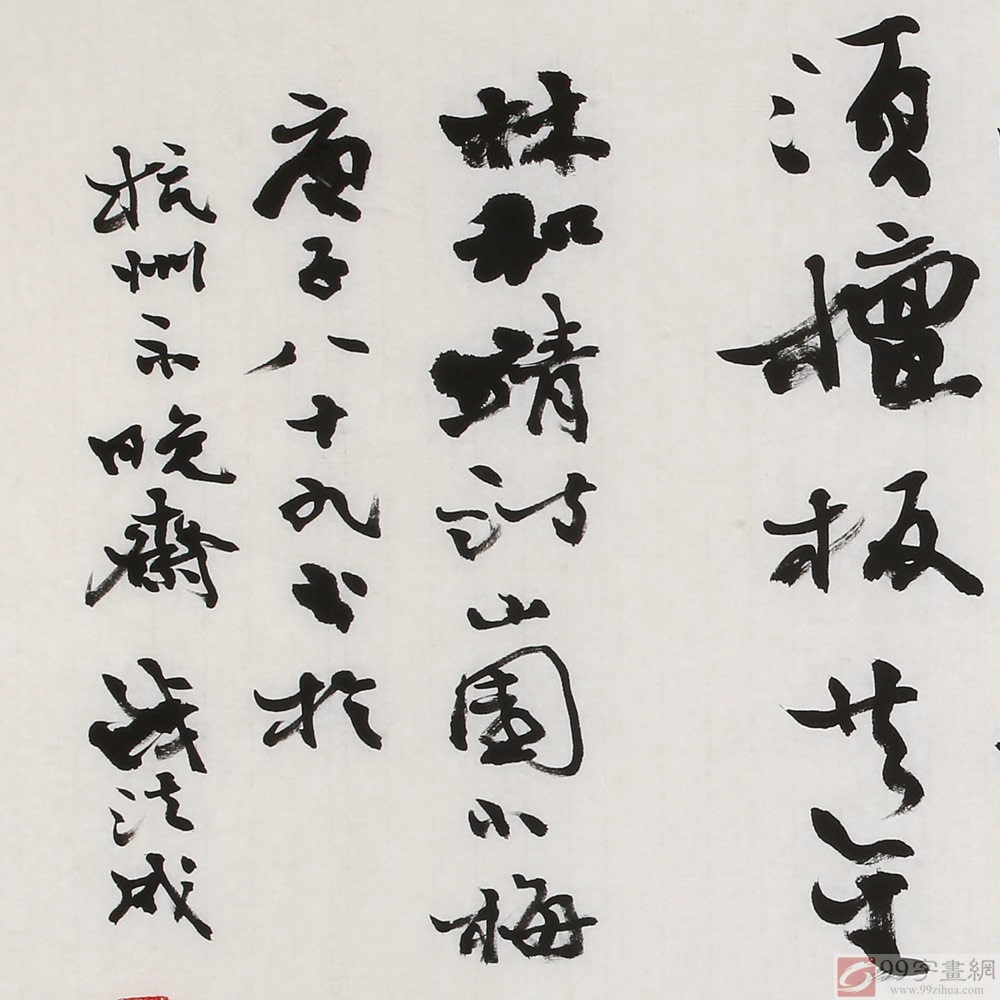 須檀板共金
林和靖詩山園小梅
庚子八十九书於
杭州 晚齋 法成
99字畫網
www.99zihua.com